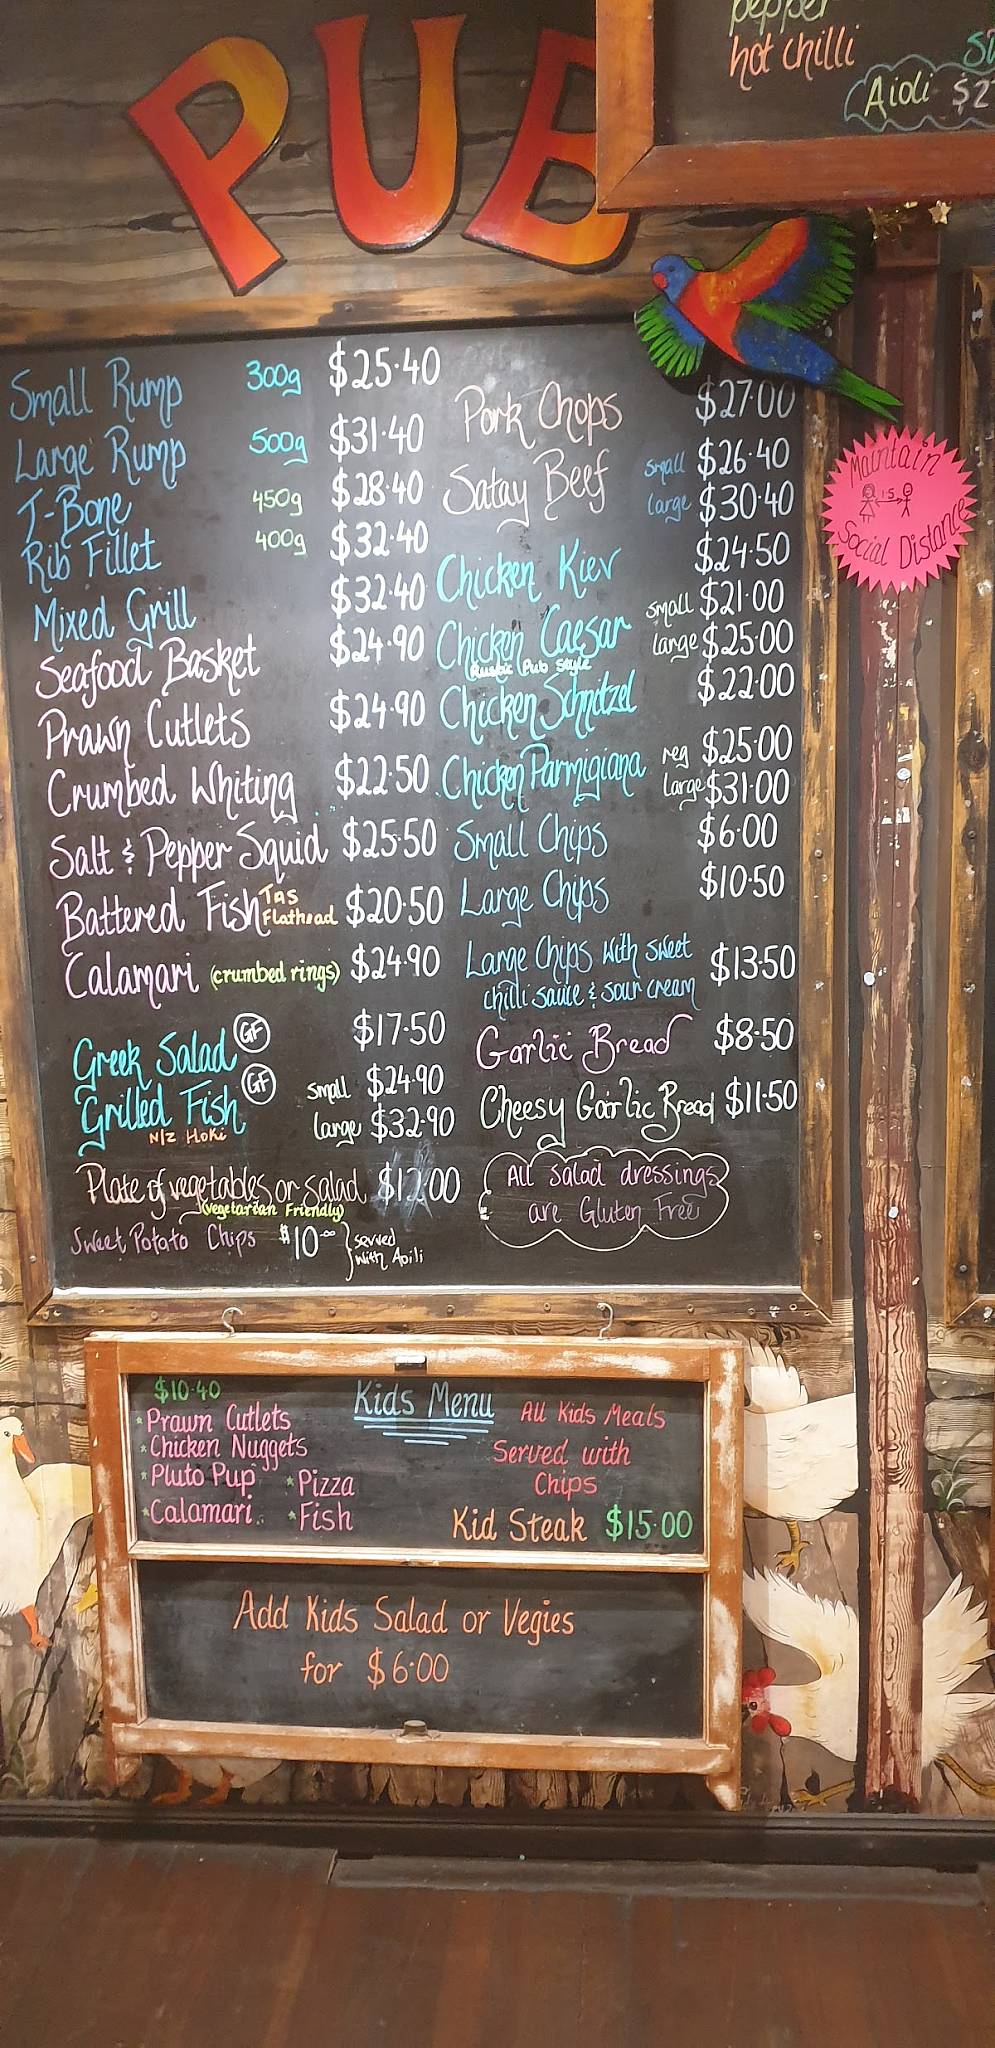 PUB
pepper
hot chilli
Aioli $2
Small Rump 300g $25.40
Large Rump 500g $31.40
T-Bone 450g $28.40
Rib Fillet 400g $32.40
Mixed Grill $32.40
Seafood Basket $24.90
Prawn Cutlets $24.90
Crumbed Whiting $22.50
Salt & Pepper Squid $25.50
Battered Fish Tas Flathead $20.50
Calamari (crumbed rings) $24.90
Greek Salad GF $17.50
Grilled Fish GF small $24.90
N/Z Hoki large $32.90
Plate of vegetables or salad $12.00
(Vegetarian Friendly)
Sweet Potato Chips $10.00 served
with Aoili
Pork Chops $27.00
Satay Beef small $26.40
large $30.40
Chicken Kiev $24.50
Chicken Caesar small $21.00
Rustic Pub Style large $25.00
Chicken Schnitzel $22.00
Chicken Parmigiana reg $25.00
Large $31.00
Small Chips $6.00
Large Chips $10.50
Large Chips with sweet $13.50
chilli sauce & sour cream
Garlic Bread $8.50
Cheesy Garlic Bread $11.50
All salad dressings
are Gluten Free
Maintain
1.5
Social Distance
Kids Menu
$10.40
* Prawn Cutlets
* Chicken Nuggets
* Pluto Pup * Pizza
* Calamari * Fish
All Kids Meals
Served with
Chips
Kid Steak $15.00
Add Kids Salad or Vegies
for $6.00